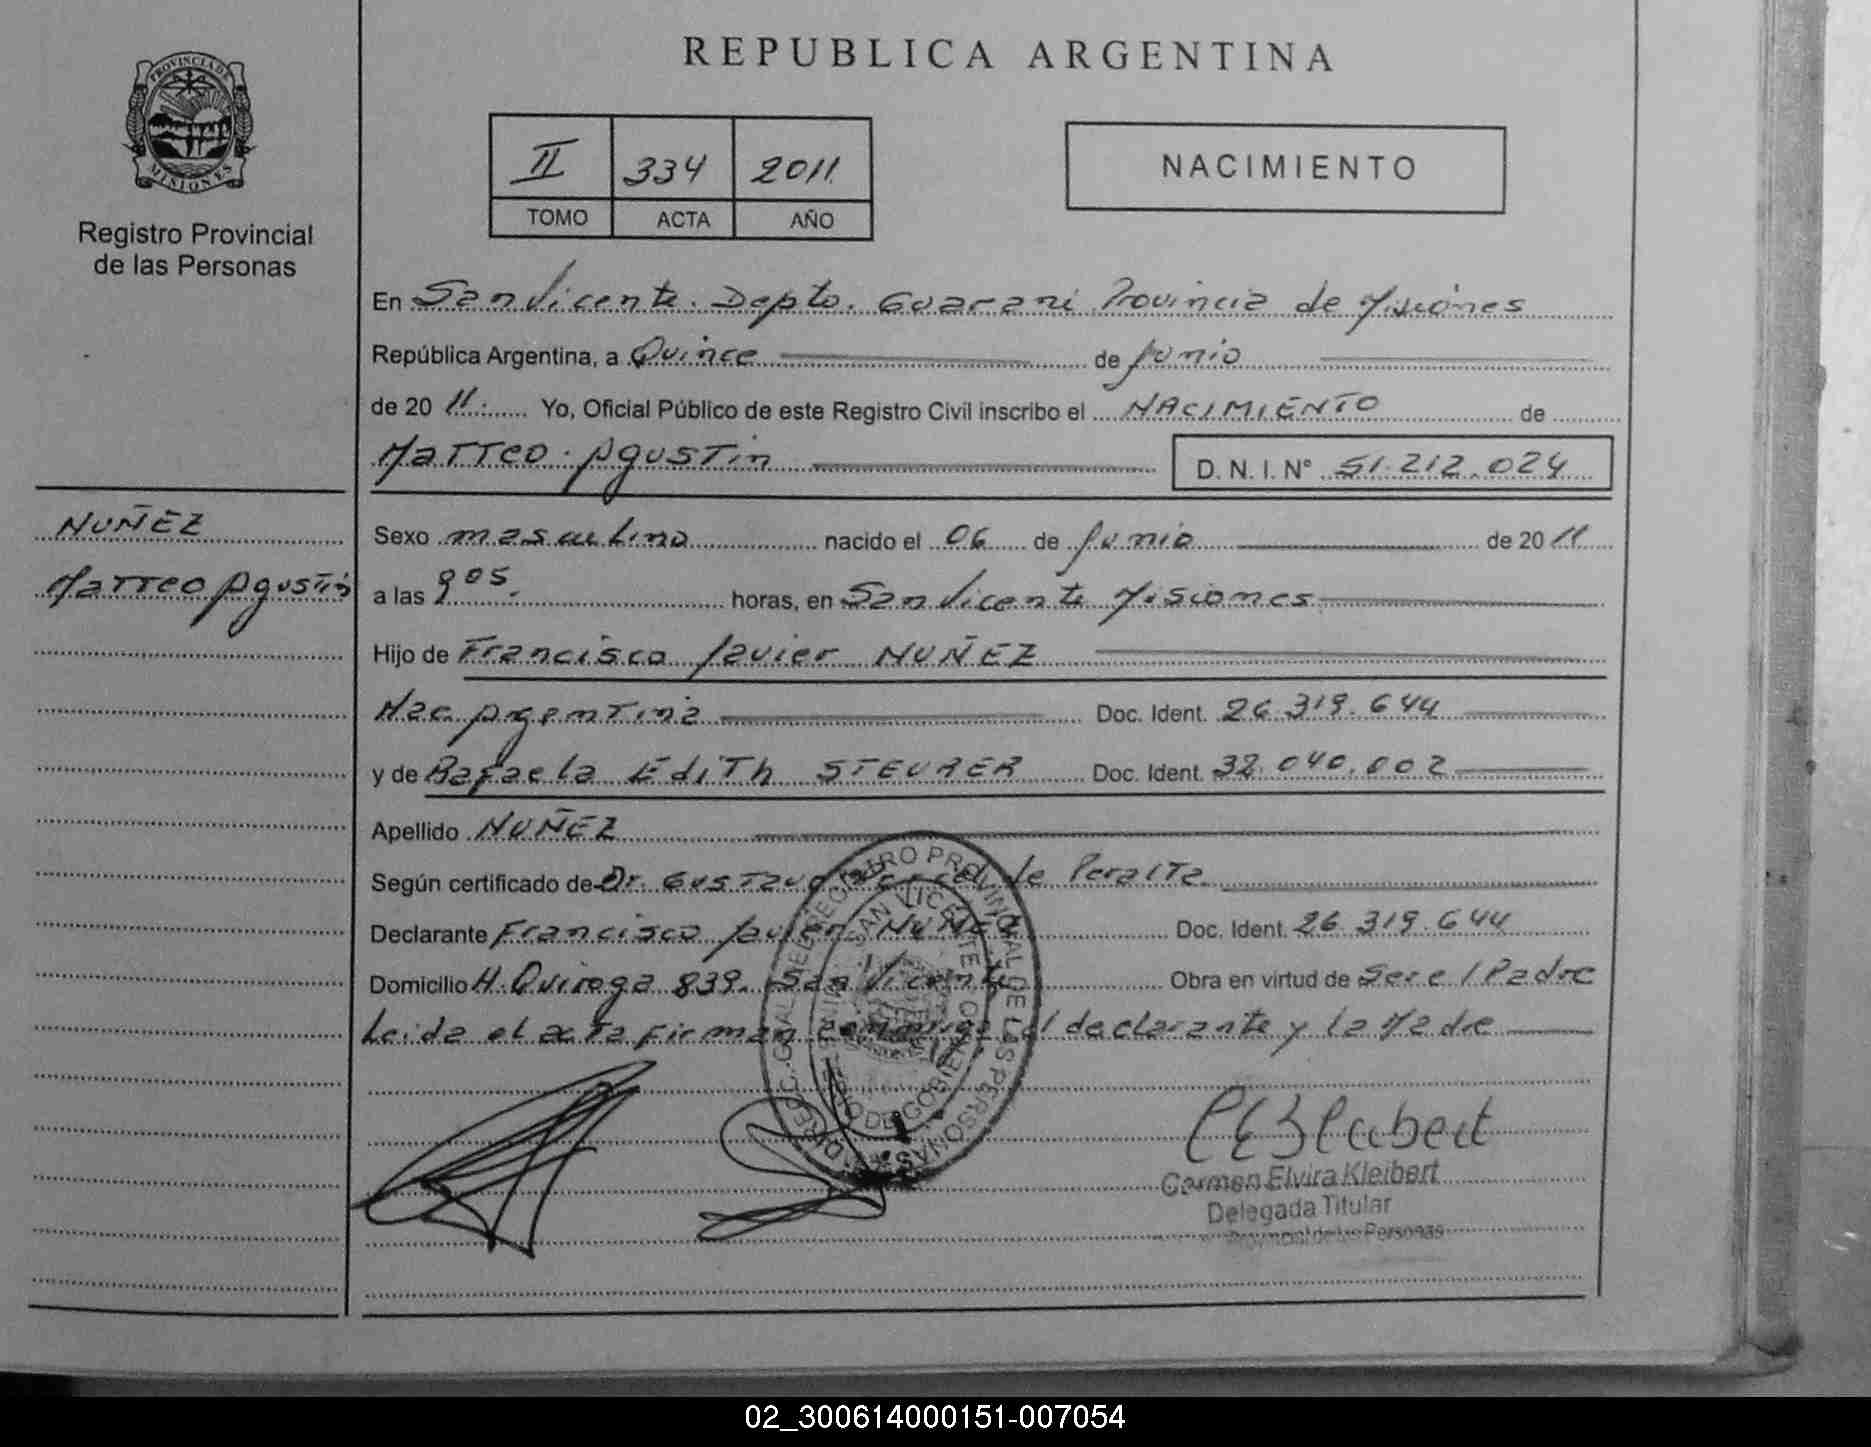 REPUBLICA ARGENTINA
PROVINCIA DE
MISIONES
Registro Provincial
de las Personas
II 334 2011
TOMO ACTA AÑO
NACIMIENTO
En San Vicente. Depto. Guarani Provincia de Misiones
República Argentina, a Quince de Junio
de 20 11. Yo, Oficial Público de este Registro Civil inscribo el NACIMIENTO de
Matteo Agustin D. N. I. N° 51.212.024
NUÑEZ
Matteo Agustin
Sexo masculino nacido el 06 de Junio de 20 11
a las 9 05. horas, en San Vicente Misiones
Hijo de Francisco Javier NUÑEZ
Nac Argentina Doc. Ident. 26.319.644
y de Rafaela Edith STEURER Doc. Ident. 32.040.002
Apellido NUÑEZ
Según certificado de Dr. Gustavo de Peralta
Declarante Francisco Javier NUÑEZ Doc. Ident. 26.319.644
Domicilio H. Quiroga 839. San Vicente Obra en virtud de Ser el Padre
Leida el acta firman conmigo el declarante y la Madre
REGISTRO PROVINCIAL DE LAS PERSONAS
SAN VICENTE
Carmen Elvira Kleibert
Delegada Titular
Provincial de las Personas
02_300614000151-007054